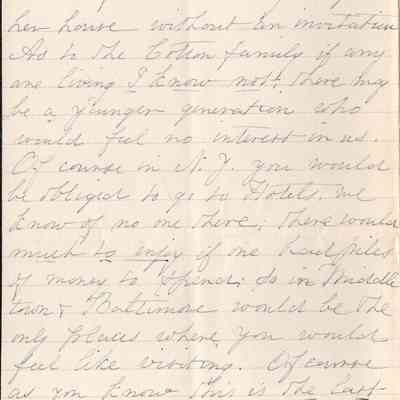 her house without an invitation
As to the Cotton family if any
are living I know not; there may
be a younger generation who
would feel no interest in us.
Of course in N.Y. you would
be obliged to go to Hotels. we
know of no one there; there would
much to enjoy if one had piles
of money to spend; So in Middle
town & Baltimore would be the
only places where you would
feel like visiting. Of course
as you know this is the last